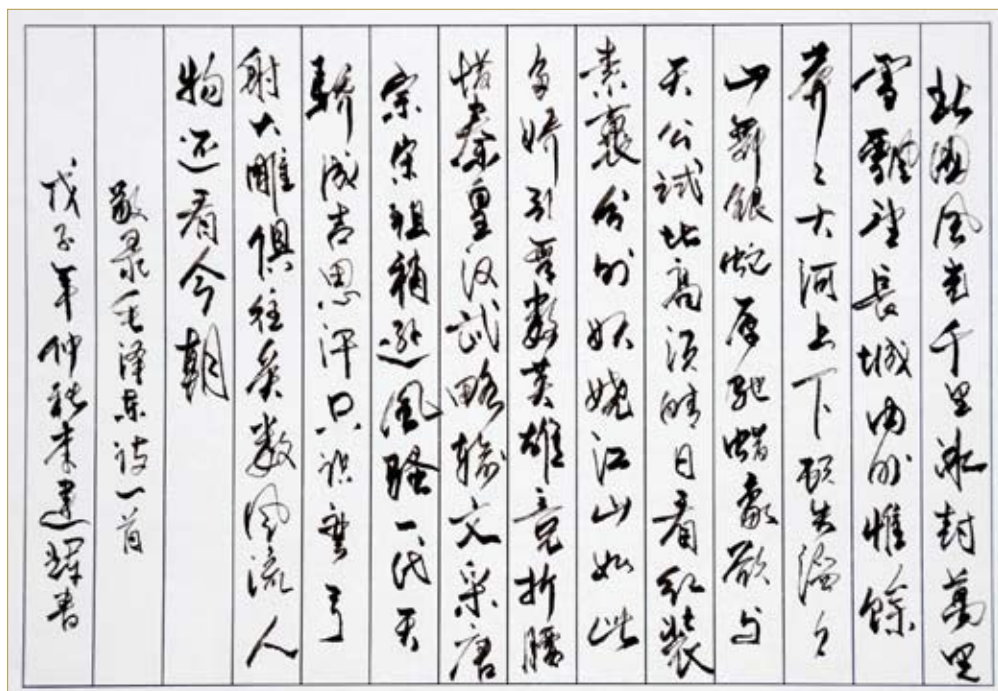 北國风光千里冰封萬里
雪飄望長城内外惟餘
莽々大河上下顿失滔々
山舞銀蛇原驰蜡象欲与
天公試比高须晴日看红装
素裹分外妖娆江山如此
多娇引無数英雄竞折腰
惜秦皇汉武略输文采唐
宗宋祖稍逊風骚一代天
骄成吉思汗只识弯弓
射大雕俱往矣数风流人
物还看今朝
敬录毛泽东诗一首
戊子年仲秋李建辉书